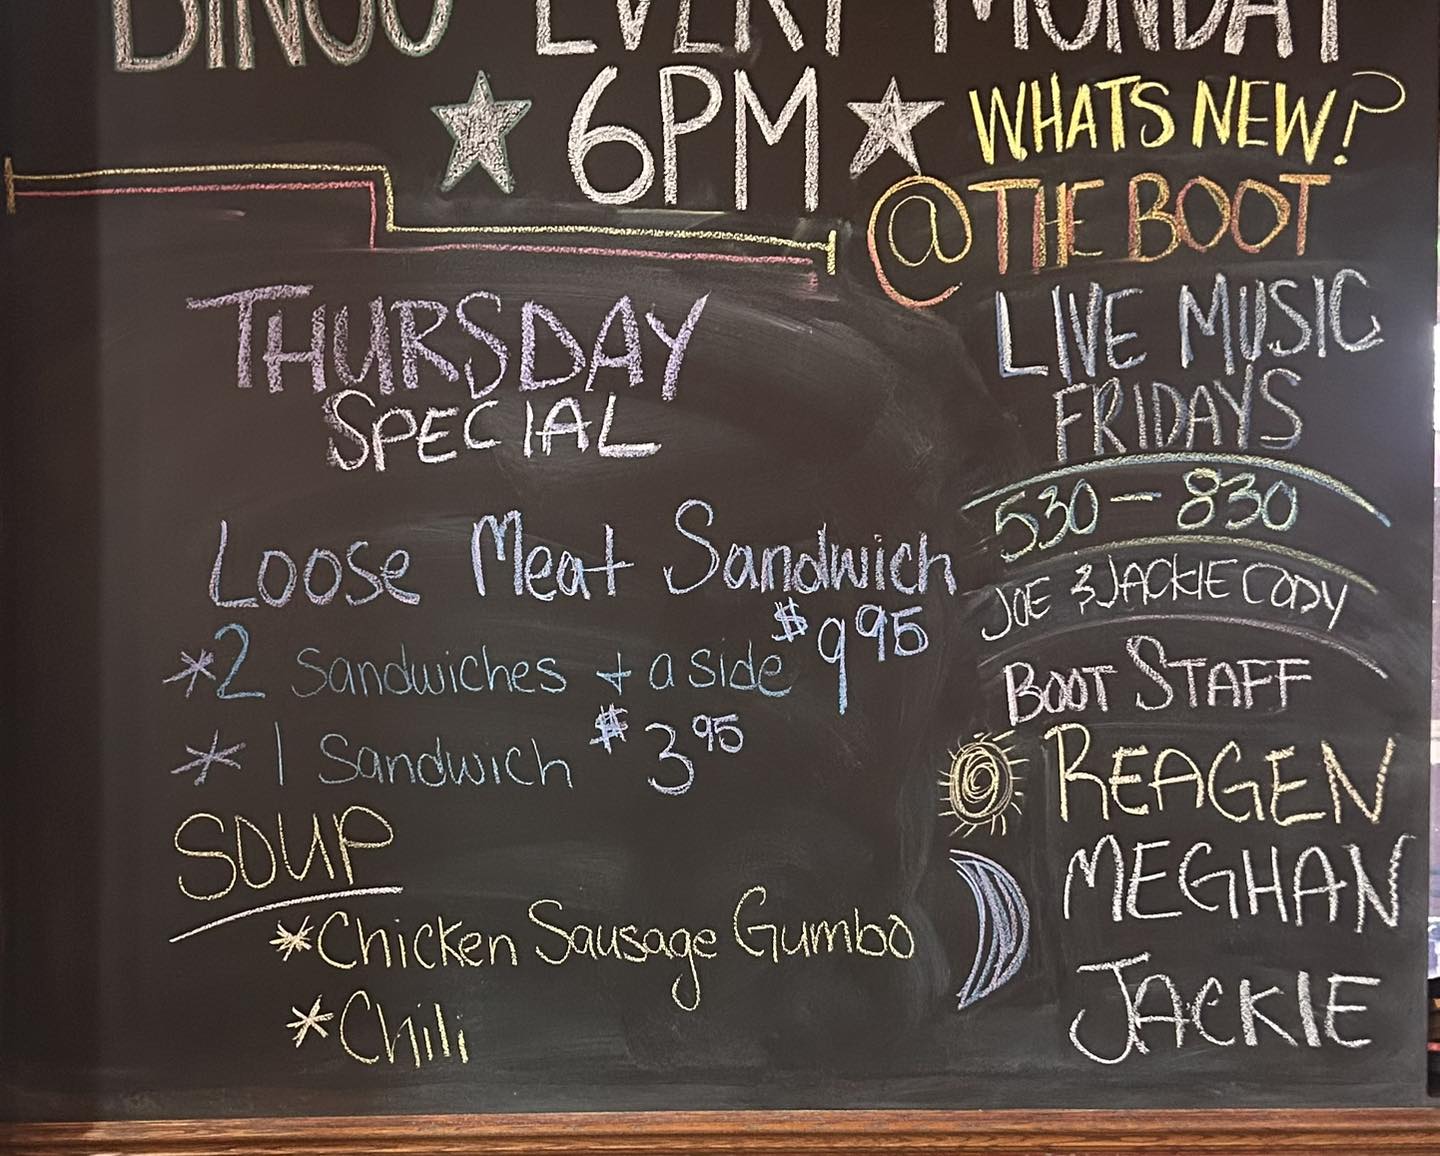 BINGO EVERY MONDAY
6PM
THURSDAY
SPECIAL
Loose Meat Sandwich
*2 Sandwiches + a side $9 95
* 1 Sandwich $3 95
SOUP
*Chicken Sausage Gumbo
*Chili
WHATS NEW?
@THE BOOT
LIVE MUSIC
FRIDAYS
530 - 830
JOE & JACKIE CODY
BOOT STAFF
REAGEN
MEGHAN
JACKIE